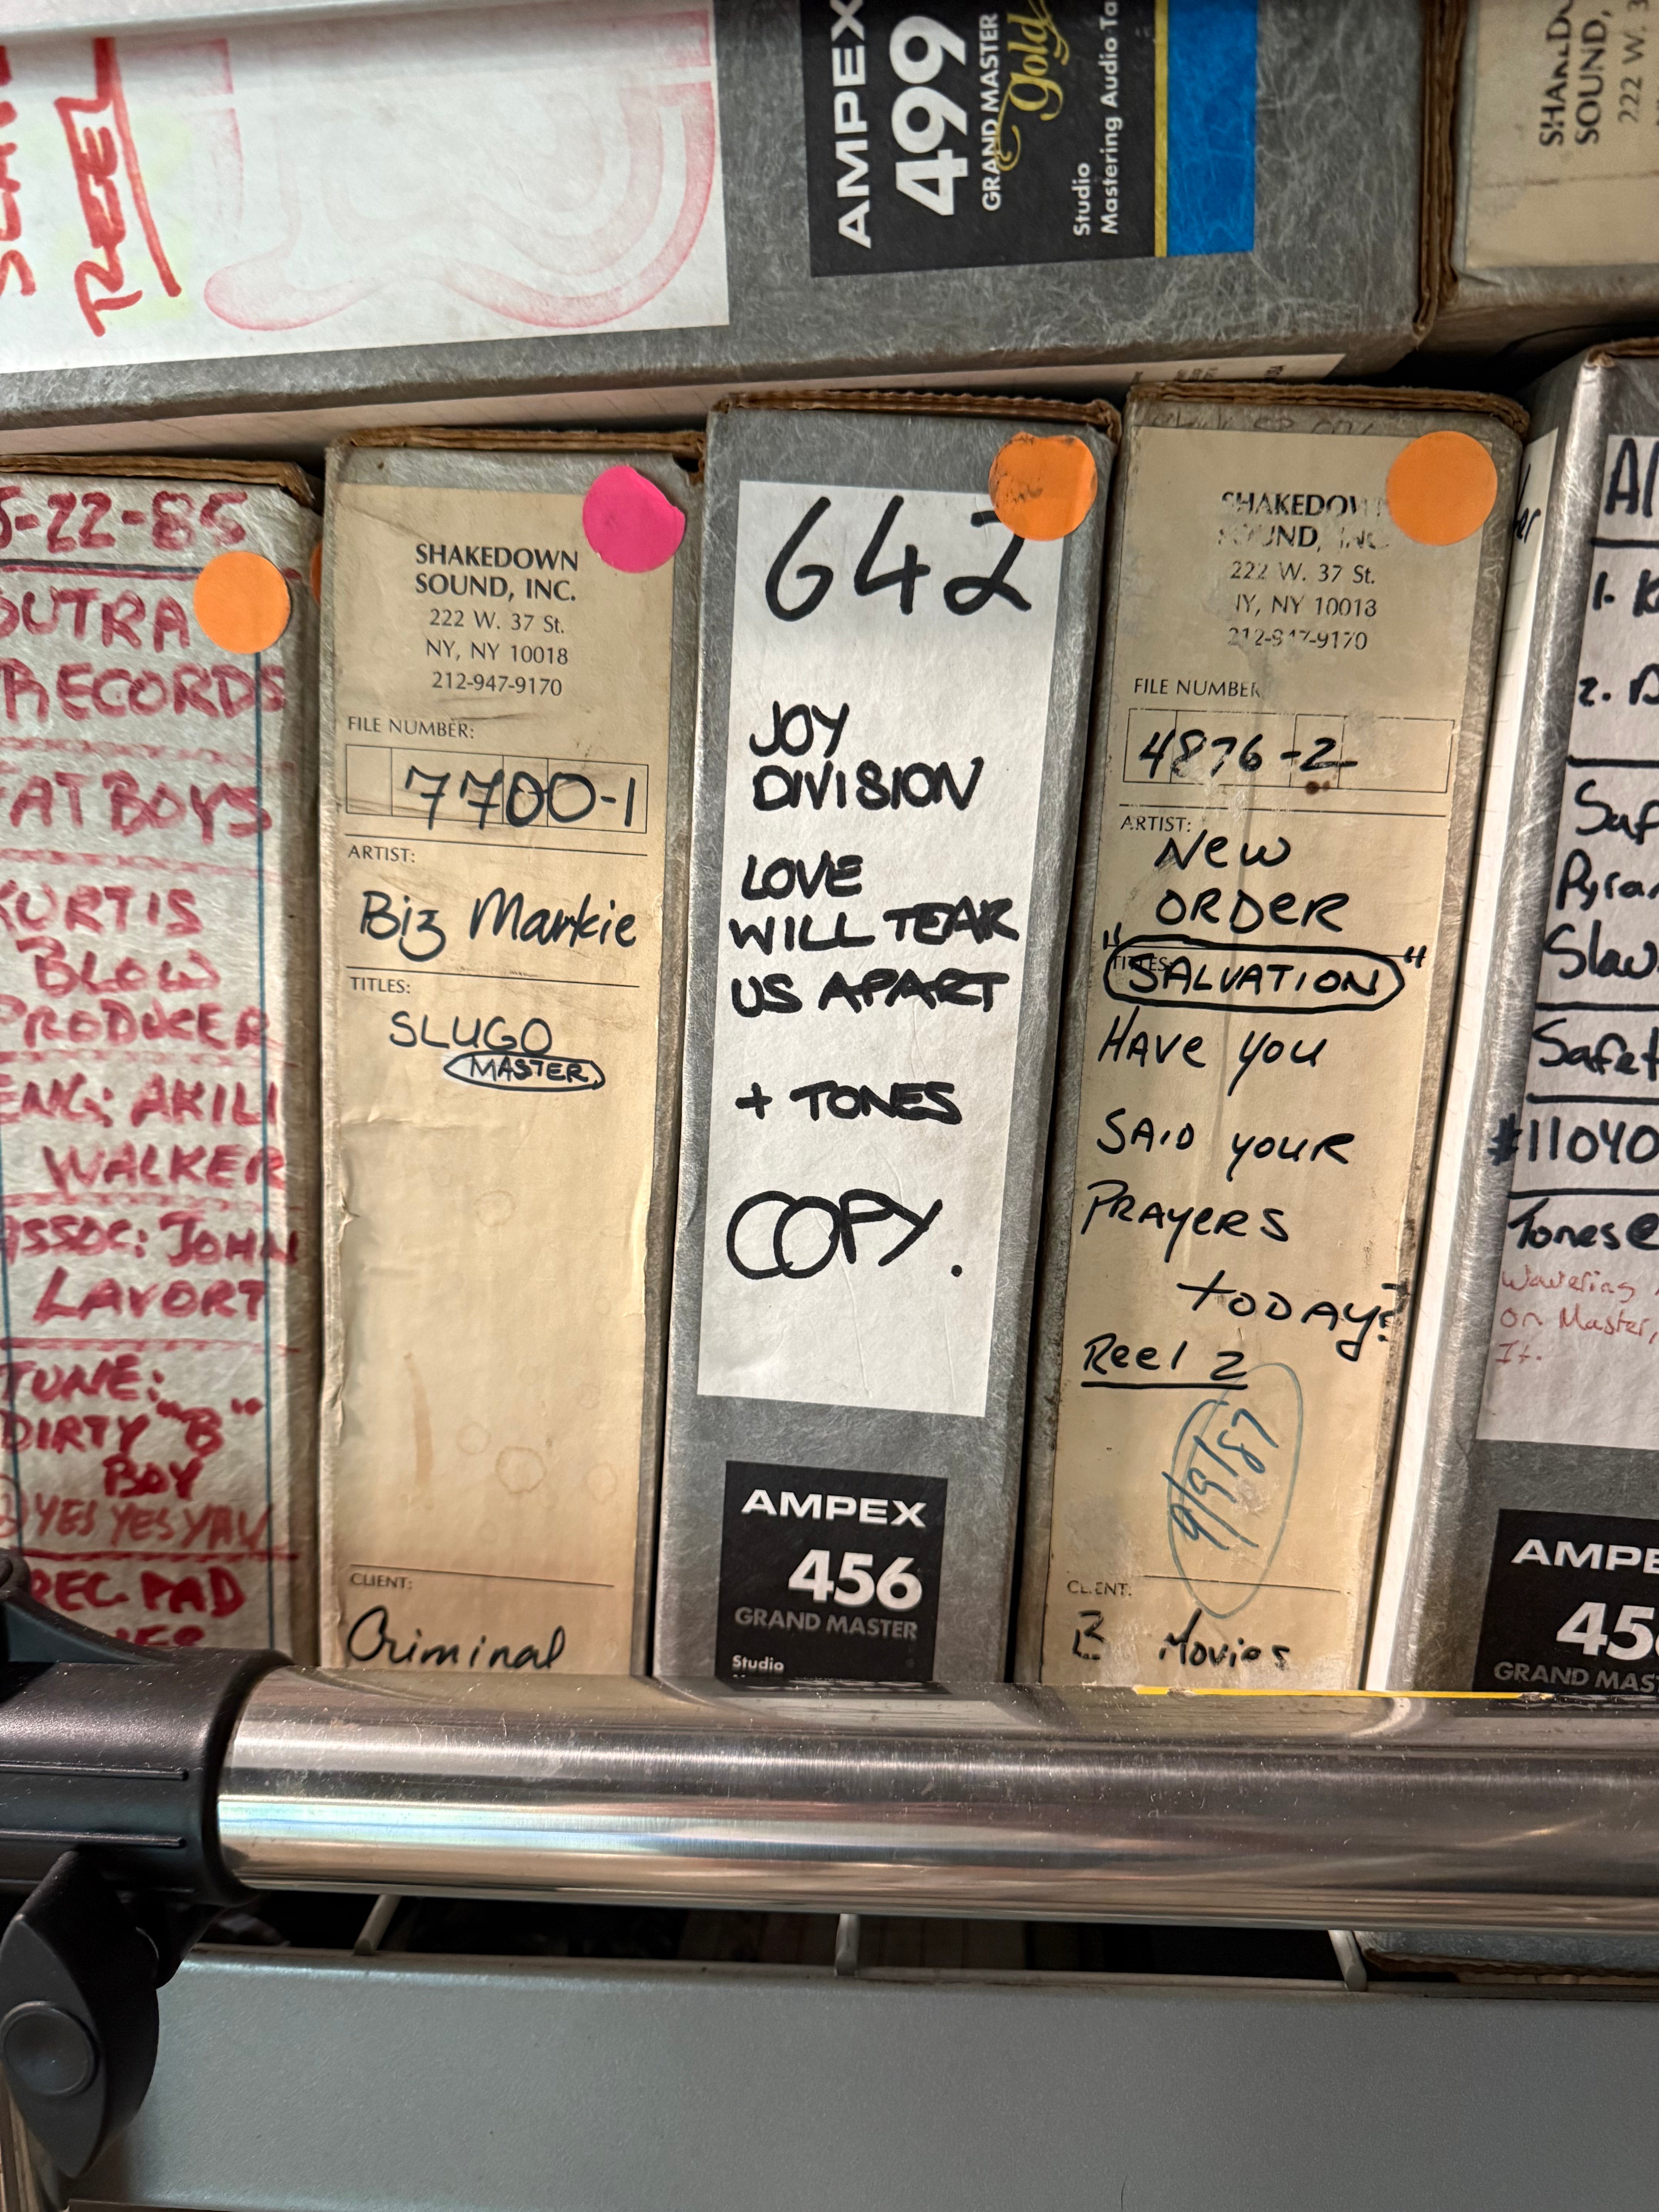 REEL
AMPEX
499
GRAND MASTER
gold
Studio
SOUND,
222 W. 3
5-22-85
SUTRA
RECORDS
FAT BOYS
KURTIS
BLOW
PRODUCER
ENG: AKILI
WALKER
ASSOC: JOHN
LAVORT
TUNE:
DIRTY "B"
BOY
YES YES YAW
REC. PAD
SHAKEDOWN
SOUND, INC.
222 W. 37 St.
NY, NY 10018
212-947-9170
FILE NUMBER:
7700-1
ARTIST:
Biz Markie
TITLES:
SLUGO
MASTER
CLIENT:
Criminal
642
JOY
DIVISION
LOVE
WILL TEAR
US APART
+ TONES
COPY.
AMPEX
456
GRAND MASTER
Studio
SHAKEDOWN
SOUND, INC.
222 W. 37 St.
NY, NY 10018
212-947-9170
FILE NUMBER
4876-2
ARTIST:
New
ORDER
TITLES:
"SALVATION"
HAVE YOU
SAID YOUR
PRAYERS
TODAY?
Reel 2
9/9/87
CLIENT:
B Movies
1.
2.
#11040
Tones @
Wavering
on Master,
It.
AMPE
GRAND MAS